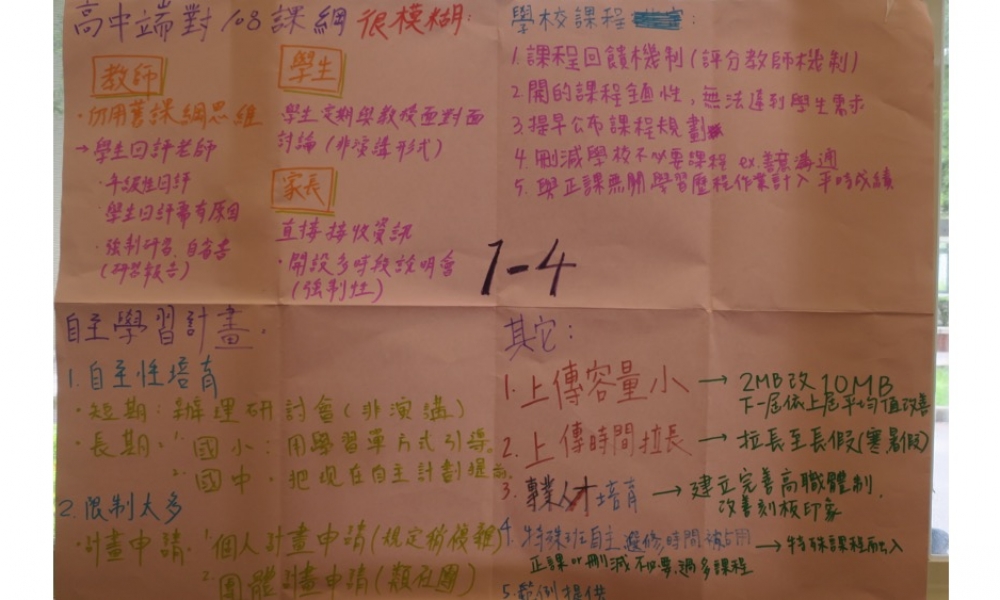 高中端對108課綱很模糊:
教師
·仍用舊課綱思維
→學生回評老師
·年級性回評
·學生回評需有原因
·強制研習,自省書
(研習報告)
學生
學生定期與教授面對面
討論(非演講形式)
家長
直接接收資訊
·開設多時段說明會
(強制性)
學校課程:
1.課程回饋機制(評分教師機制)
2.開的課程,無法達到學生需求
3.提早公布課程規劃
4.刪減學校不必要課程 ex.善意溝通
5.與正課無關學習歷程作業計入平時成績
1-4
自主學習計畫.
1.自主性培育
·短期:辦理研討會(非演講)
·長期:1.國小:用學習單方式引導。
2.國中:把現在自主計劃提前
2.限制太多
·計畫申請.1.個人計畫申請(規定稍複雜)
2.團體計畫申請(類社團)
其它:
1.上傳容量小→2MB改10MB
下一屆依上屆平均值改善
2.上傳時間拉長→拉長至長假(寒暑假)
3.專業人才培育→建立完善高職體制.
改善刻板印象
4.特殊班自主、選修時間被占用→特殊課程融入
正課or刪減不必要、過多課程
5.範例提供